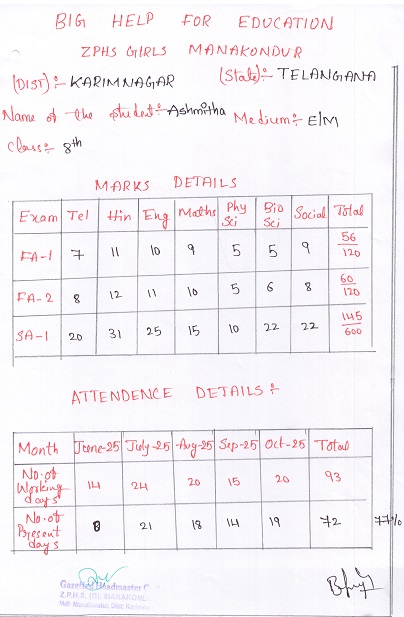 BIG HELP FOR EDUCATION
ZPHS GIRLS MANAKONDUR
(DIST):- KARIMNAGAR (State):- TELANGANA
Name of the student:- Ashmitha Medium:- E/M
Class:- 8th
MARKS DETAILS
Exam Tel Hin Eng Maths Phy Sci Bio Sci Social Total
FA-1 7 11 10 9 5 5 9 56/120
FA-2 8 12 11 10 5 6 8 60/120
SA-1 20 31 25 15 10 22 22 145/600
ATTENDENCE DETAILS:-
Month June-25 July-25 Aug-25 Sep-25 Oct-25 Total
No. of Working days 14 24 20 15 20 93
No. of Present days 8 21 18 14 19 72 77%
Gazetted Headmaster
Z.P.H.S. (G), MANAKON